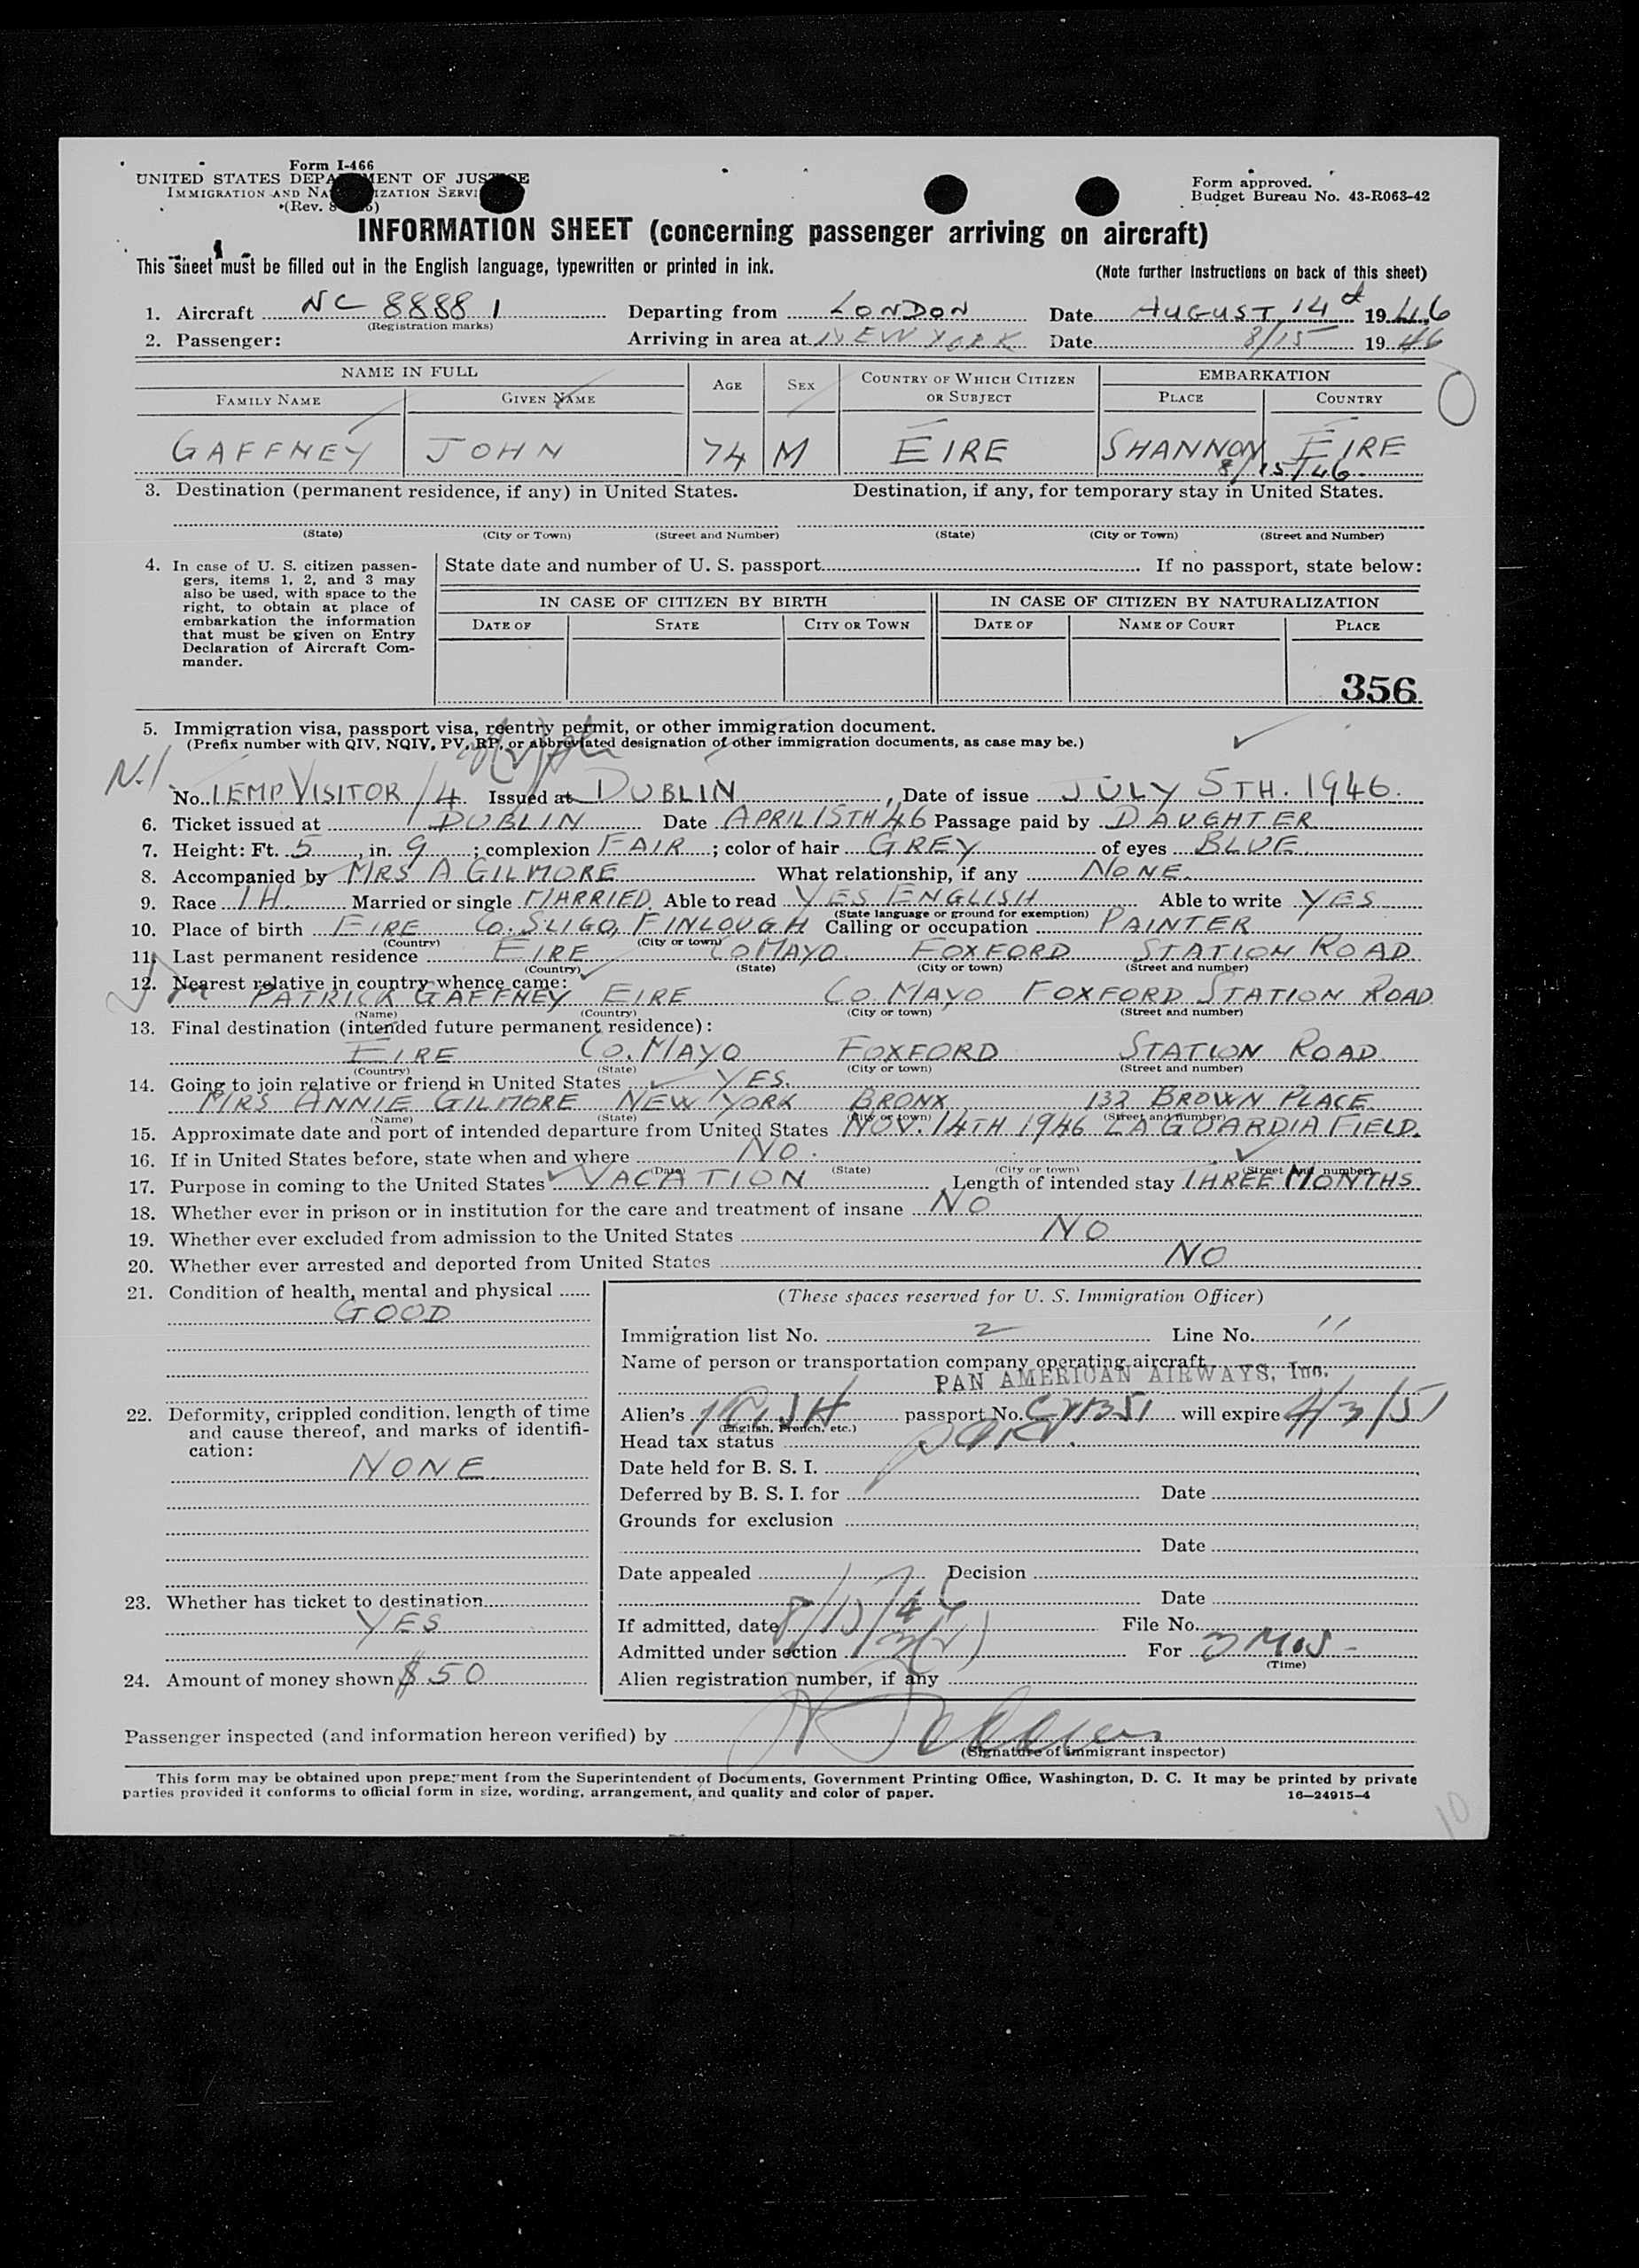 Form I-466
UNITED STATES DEPARTMENT OF JUSTICE
IMMIGRATION AND NATURALIZATION SERVICE
(Rev.
Form approved.
Budget Bureau No. 43-R063-42
INFORMATION SHEET (concerning passenger arriving on aircraft)
This sheet must be filled out in the English language, typewritten or printed in ink. (Note further instructions on back of this sheet)
1. Aircraft NC 88881 Departing from LONDON Date AUGUST 14 1946
(Registration marks)
2. Passenger: Arriving in area at NEW YORK Date 8/15 1946
NAME IN FULL AGE SEX COUNTRY OF WHICH CITIZEN OR SUBJECT EMBARKATION
FAMILY NAME GIVEN NAME PLACE COUNTRY
GAFFNEY JOHN 74 M EIRE SHANNON EIRE
8/15/46
3. Destination (permanent residence, if any) in United States. Destination, if any, for temporary stay in United States.
(State) (City or Town) (Street and Number) (State) (City or Town) (Street and Number)
4. In case of U. S. citizen passengers, items 1, 2, and 3 may also be used, with space to the right, to obtain at place of embarkation the information that must be given on Entry Declaration of Aircraft Commander.
State date and number of U. S. passport If no passport, state below:
IN CASE OF CITIZEN BY BIRTH IN CASE OF CITIZEN BY NATURALIZATION
DATE OF STATE CITY OR TOWN DATE OF NAME OF COURT PLACE
356
5. Immigration visa, passport visa, reentry permit, or other immigration document.
(Prefix number with QIV, NQIV, PV, RP, or abbreviated designation of other immigration documents, as case may be.)
No. TEMP VISITOR / 4 Issued at DUBLIN, Date of issue JULY 5TH. 1946.
6. Ticket issued at DUBLIN Date APRIL 15TH 46 Passage paid by DAUGHTER
7. Height: Ft. 5, in. 9; complexion FAIR; color of hair GREY of eyes BLUE
8. Accompanied by MRS A GILMORE What relationship, if any NONE.
9. Race IH. Married or single MARRIED. Able to read YES ENGLISH Able to write YES
(State language or ground for exemption)
10. Place of birth EIRE CO. SLIGO, FINLOUGH Calling or occupation PAINTER
(Country) (City or town)
11. Last permanent residence EIRE CO MAYO. FOXFORD STATION ROAD
(Country) (State) (City or town) (Street and number)
12. Nearest relative in country whence came:
PATRICK GAFFNEY EIRE CO. MAYO FOXFORD STATION ROAD
(Name) (Country) (City or town) (Street and number)
13. Final destination (intended future permanent residence):
EIRE CO. MAYO FOXFORD STATION ROAD
(Country) (State) (City or town) (Street and number)
14. Going to join relative or friend in United States YES.
MRS ANNIE GILMORE NEW YORK BRONX 132 BROWN PLACE
(Name) (State) (City or town) (Street and number)
15. Approximate date and port of intended departure from United States NOV. 14TH 1946 LA GUARDIA FIELD.
16. If in United States before, state when and where NO.
(Date) (State) (City or town) (Street and number)
17. Purpose in coming to the United States VACATION Length of intended stay THREE MONTHS
18. Whether ever in prison or in institution for the care and treatment of insane NO
19. Whether ever excluded from admission to the United States NO
20. Whether ever arrested and deported from United States NO
21. Condition of health, mental and physical
GOOD
22. Deformity, crippled condition, length of time and cause thereof, and marks of identification:
NONE
23. Whether has ticket to destination
YES
24. Amount of money shown $50
(These spaces reserved for U. S. Immigration Officer)
Immigration list No. 2 Line No. 11
Name of person or transportation company operating aircraft
PAN AMERICAN AIRWAYS, Inc.
Alien's IRISH passport No. will expire 4/3/51
(English, French, etc.)
Head tax status
Date held for B. S. I.
Deferred by B. S. I. for Date
Grounds for exclusion
Date
Date appealed Decision
Date
If admitted, date 8/15/46 File No.
Admitted under section 3(2) For 3 MOS -
(Time)
Alien registration number, if any
Passenger inspected (and information hereon verified) by
(Signature of immigrant inspector)
This form may be obtained upon prepayment from the Superintendent of Documents, Government Printing Office, Washington, D. C. It may be printed by private
parties provided it conforms to official form in size, wording, arrangement, and quality and color of paper. 16—24915-4
10